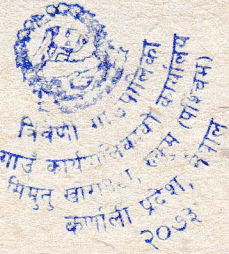 त्रिवेणी गाउँपालिका
गाउँ कार्यपालिकाको कार्यालय
रुकुम (पश्चिम)
कर्णाली प्रदेश, नेपाल
२०७३